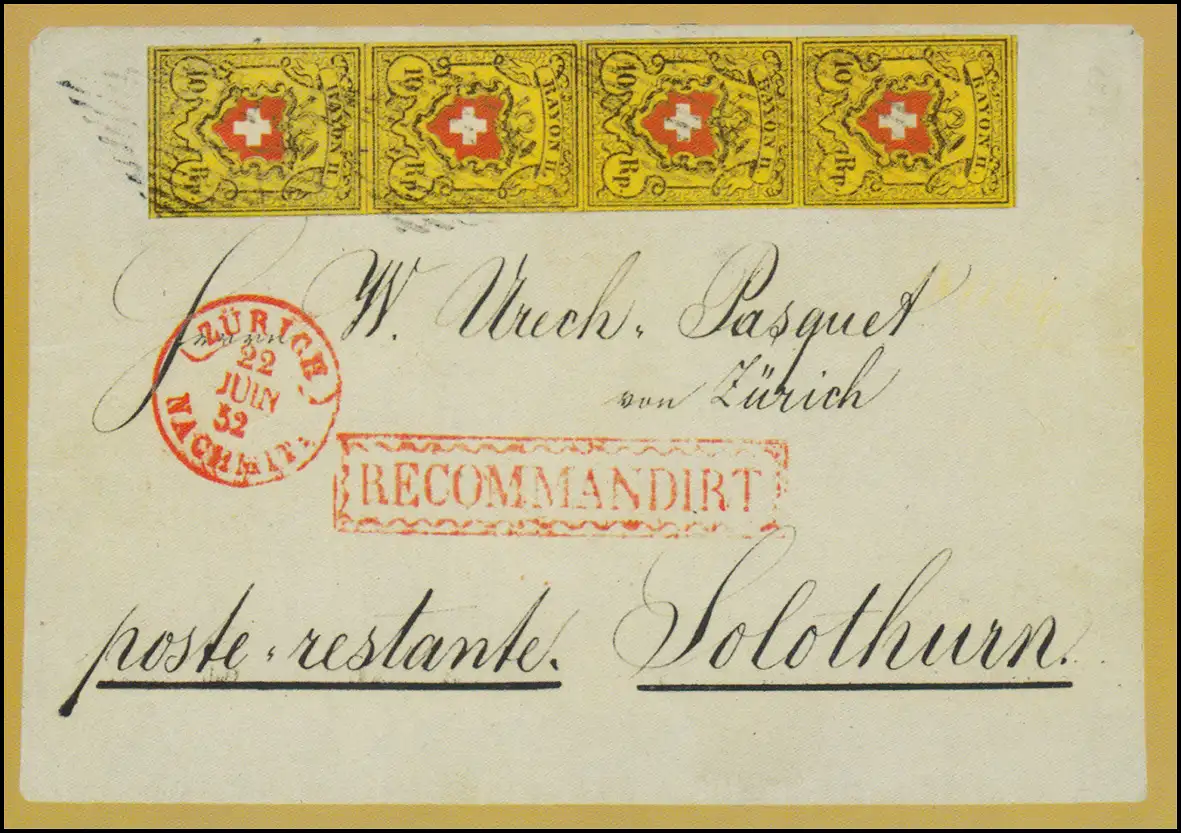 10 Rp. RAYON II. 10 Rp. RAYON II. 10 Rp. RAYON II. 10 Rp. RAYON II.
Herrn W. Urech-Pasquet
von Zürich
ZÜRICH
22
JUIN
52
NACHMIT:
RECOMMANDIRT
poste-restante. Solothurn.